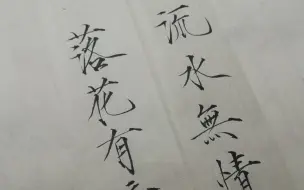 流水無情
落花有